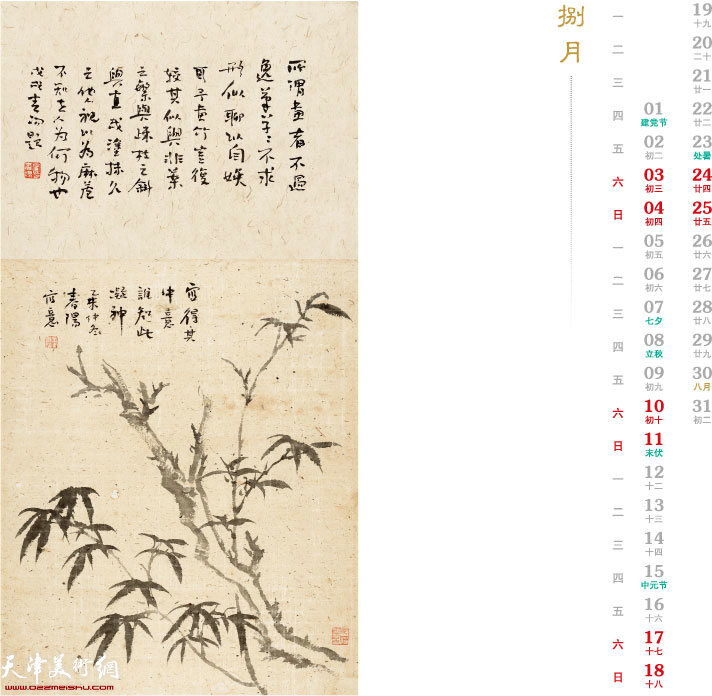 所謂畫者不過
逸筆草〻不求
形似聊以自娱
耳予畫竹豈復
較其似與非葉
之繁與疎枝之斜
與直或塗抹久
之他人視以為麻蘆
不知為何物也
戊戌春陽題
寫得其
中意
誰知此
凝神
乙未仲冬
春陽
寫意
天津美術網
www.022meishu.com
捌月
一
二
三
四
五
六
日
一
二
三
四
五
六
日
一
二
三
四
五
六
日
01
建党节
02
初二
03
初三
04
初四
05
初五
06
初六
07
七夕
08
立秋
09
初九
10
初十
11
末伏
12
十二
13
十三
14
十四
15
中元节
16
十六
17
十七
18
十八
19
十九
20
二十
21
廿一
22
廿二
23
处暑
24
廿四
25
廿五
26
廿六
27
廿七
28
廿八
29
廿九
30
八月
31
初二